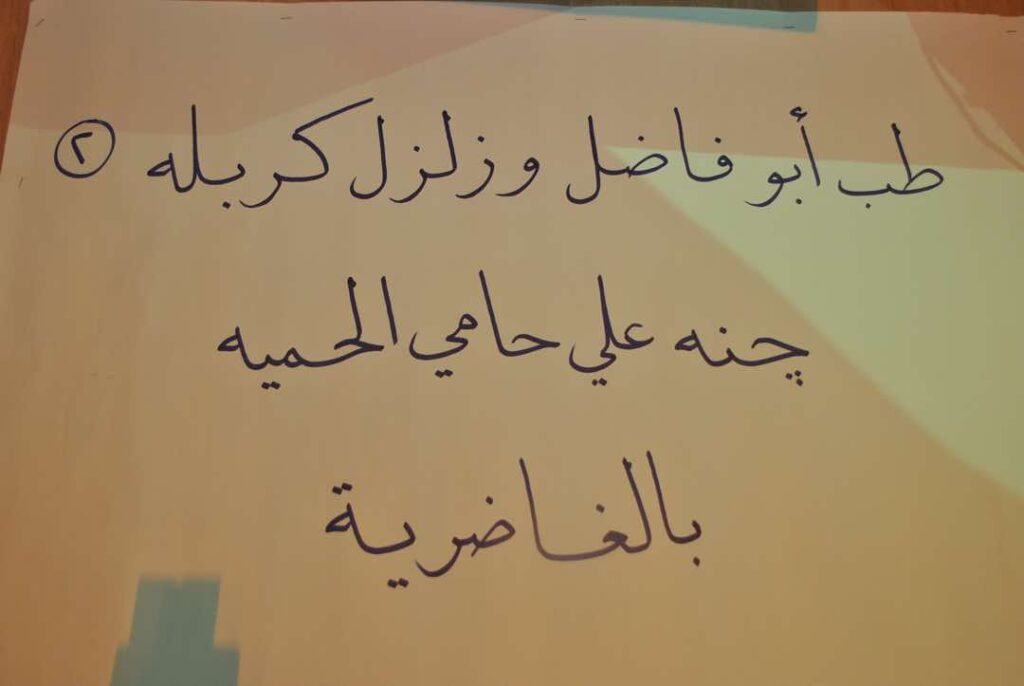 طب أبو فاضل وزلزل كربله ٢
چنه علي حامي الحميه
بالغاضرية